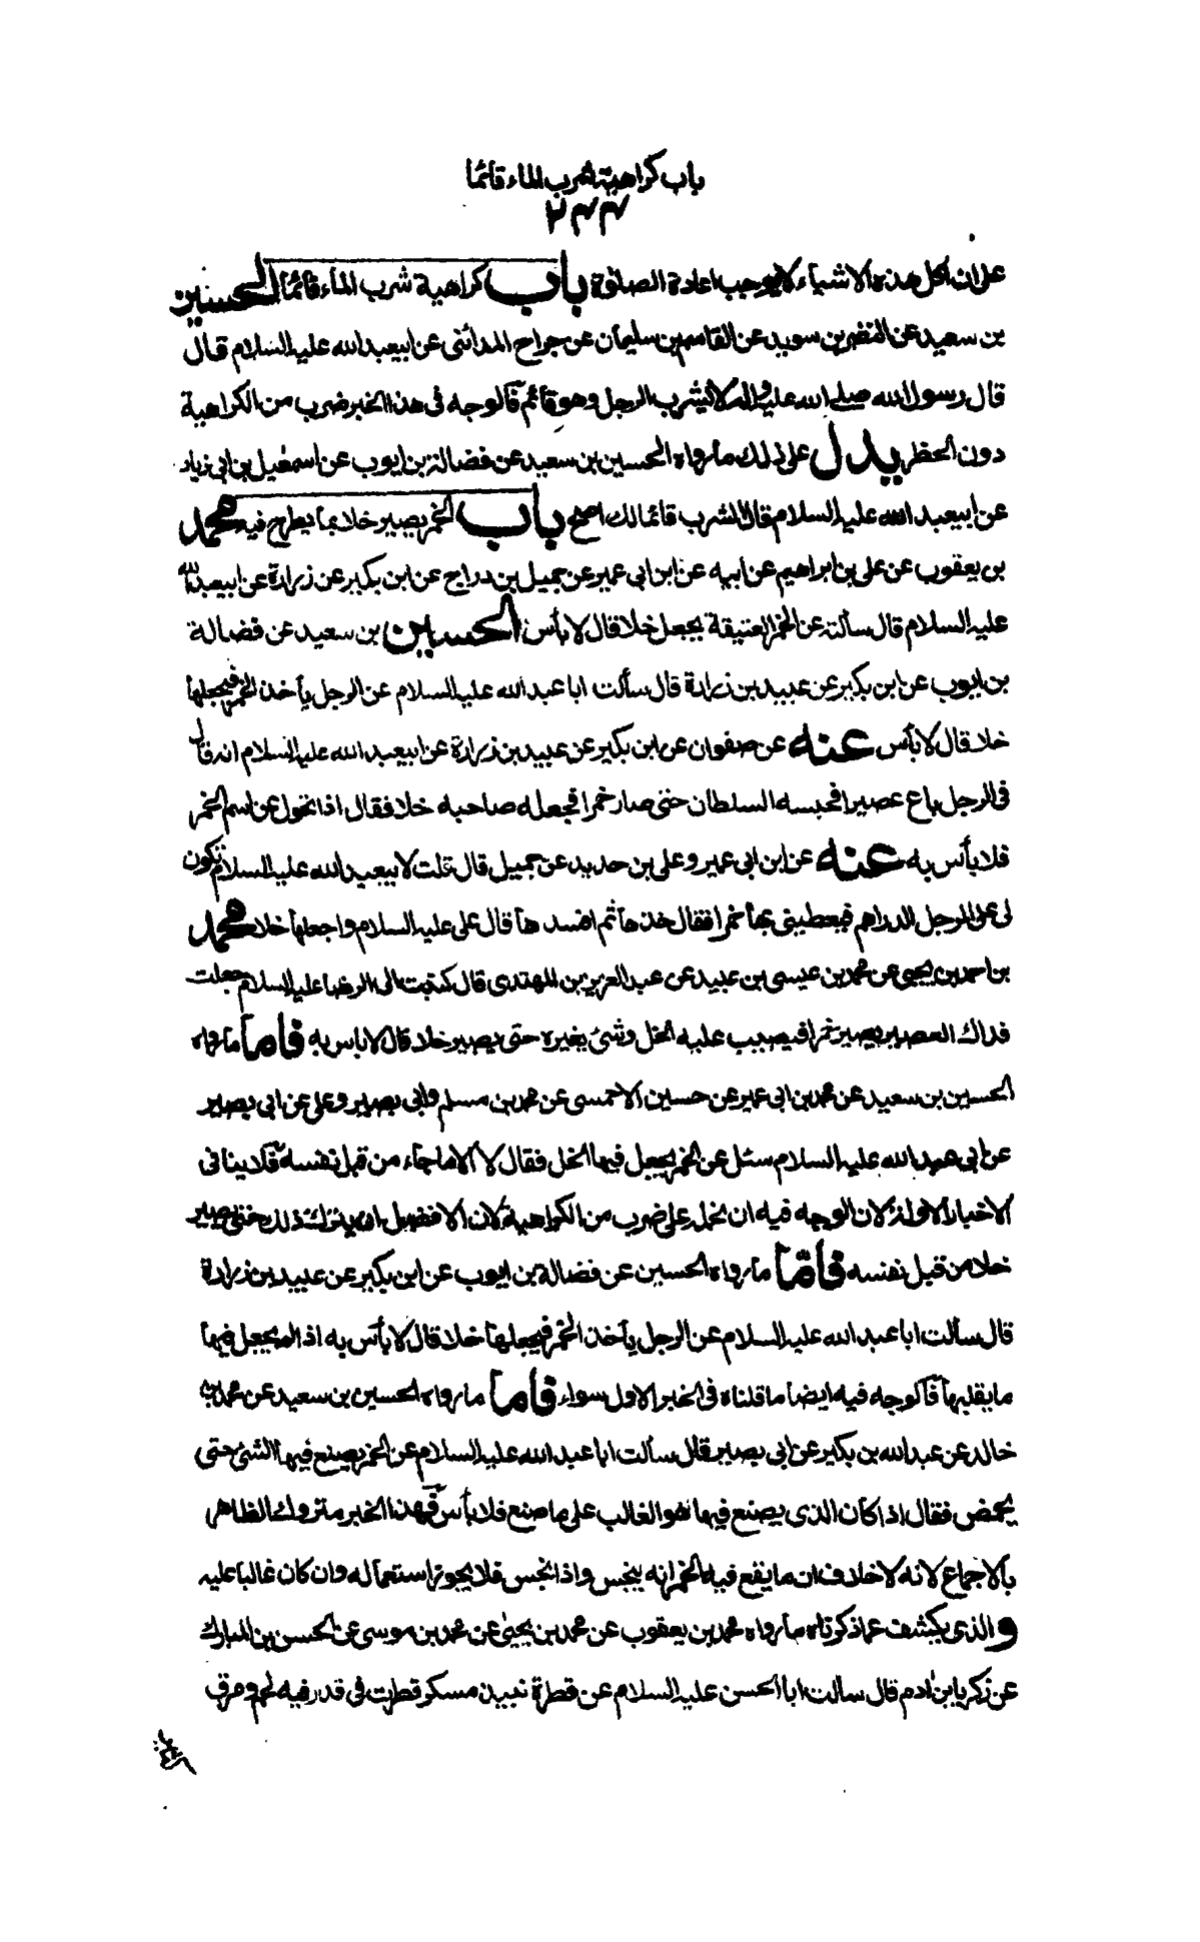 باب كراهية شرب الماء قائما
٢٤٤
على ان اكل هذه الاشياء لا يوجب اعادة الصلوة باب كراهية شرب الماء قائما الحسين
بن سعيد عن النضر بن سويد عن القاسم بن سليمان عن جراح المدائنى عن ابيعبد الله عليه السلام قال
قال رسول الله صلى الله عليه واله لا يشرب الرجل وهو قائم فالوجه فى هذا الخبر ضرب من الكراهية
دون الحظر يدل على ذلك ما رواه الحسين بن سعيد عن فضالة بن ايوب عن اسمعيل بن ابى زياد
عن ابيعبد الله عليه السلام قال الشرب قائما لك اصح باب الخمر يصير خلا بما يطرح فيه محمد
بن يعقوب عن على بن ابراهيم عن ابيه عن ابن ابى عمير عن جميل بن دراج عن ابن بكير عن زرارة عن ابيعبد الله
عليه السلام قال سألته عن الخمر العتيقة يجعل خلا قال لا بأس الحسين بن سعيد عن فضالة
بن ايوب عن ابن بكير عن عبيد بن زرارة قال سألت ابا عبد الله عليه السلام عن الرجل يأخذ الخمر فيجعلها
خلا قال لا بأس عنه عن صفوان عن ابن بكير عن عبيد بن زرارة عن ابيعبد الله عليه السلام انه قال
فى الرجل باع عصيرا فحبسه السلطان حتى صار خمرا فجعله صاحبه خلا فقال اذا تحول عن اسم الخمر
فلا بأس به عنه عن ابن ابى عمير وعلى بن حديد عن جميل قال قلت لابيعبد الله عليه السلام تكون
لى على الرجل الدراهم فيعطينى بها خمرا فقال خذها ثم افسدها قال على عليه السلام واجعلها خلا محمد
بن احمد بن يحيى عن محمد بن عيسى بن عبيد عن عبد العزيز بن المهتدى قال كتبت الى الرضا عليه السلام جعلت
فداك العصير يصير خمرا فيصيب عليه الخل وشئ يغيره حتى يصير خلا قال لا باس به فاما ما رواه
الحسين بن سعيد عن محمد بن ابى عمير عن حسين الاحمسى عن محمد بن مسلم وابى بصير وعلى عن ابى بصير
عن ابى عبد الله عليه السلام سئل عن الخمر يجعل فيها الخل فقال لا الا ما جاء من قبل نفسه فلا ينافى
الاخبار الاولة لان الوجه فيه ان نحمله على ضرب من الكراهية لان الافضل ان يترك ذلك حتى يصير
خلا من قبل نفسه فاما ما رواه الحسين عن فضالة بن ايوب عن ابن بكير عن عبيد بن زرارة
قال سألت ابا عبد الله عليه السلام عن الرجل يأخذ الخمر فيجعلها خلا قال لا بأس به اذا لم يجعل فيها
ما يقلبها فالوجه فيه ايضا ما قلناه فى الخبر الاول سواء فاما ما رواه الحسين بن سعيد عن محمد بن
خالد عن عبد الله بن بكير عن ابى بصير قال سألت ابا عبد الله عليه السلام عن الخمر يصنع فيها الشئ حتى
يحمض فقال اذا كان الذى يصنع فيها هو الغالب على ما صنع فلا بأس فهذا الخبر متروك الظاهر
بالاجماع لانه لا خلاف ان ما يقع فيه الخمر انه ينجس واذا نجس فلا يجوز استعماله وان كان غالبا عليه
والذى يكشف عما ذكرناه ما رواه محمد بن يعقوب عن محمد بن يحيى عن محمد بن موسى عن الحسن بن المبارك
عن زكريا بن ادم قال سالت ابا الحسن عليه السلام عن قطرة نبيذ مسكر قطرت فى قدر فيه لحم ومرق